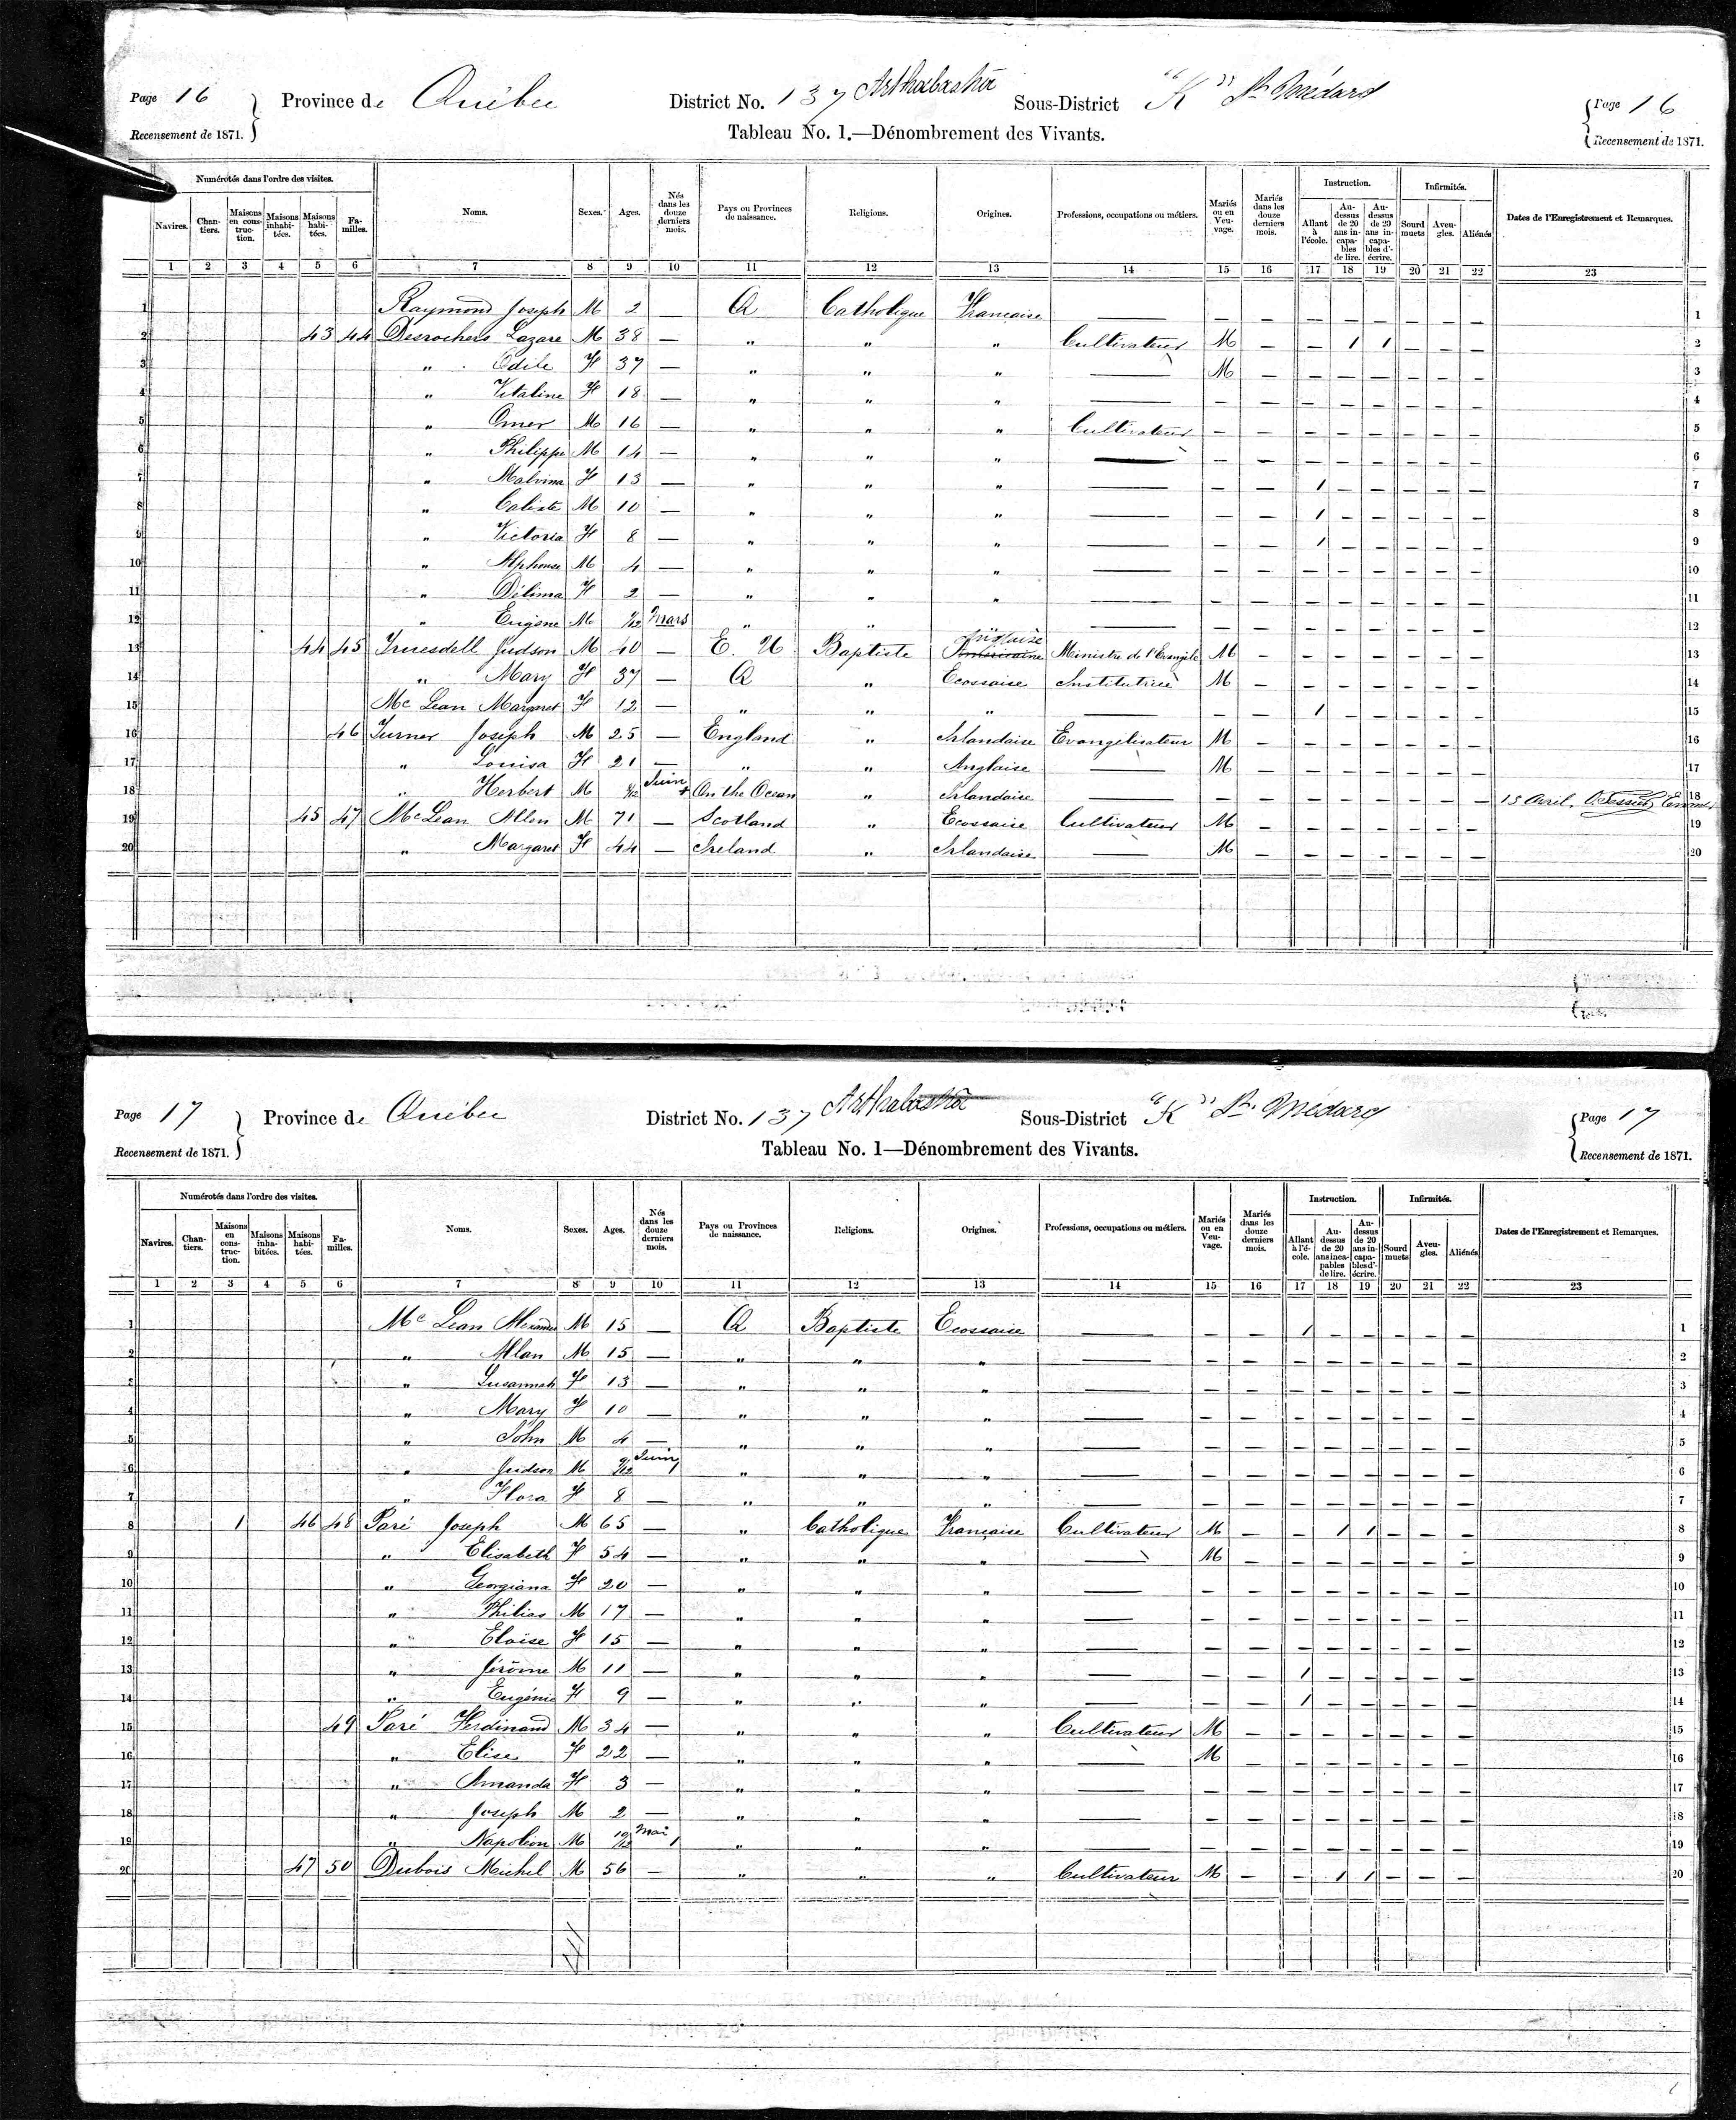 Page 16 } Province de Québec District No. 137 Arthabaska Sous-District "K" St Médard { Page 16
Recensement de 1871. Tableau No. 1.—Dénombrement des Vivants. Recensement de 1871.
Numérotés dans l'ordre des visites. Noms. Sexes. Ages. Nés dans les douze derniers mois. Pays ou Provinces de naissance. Religions. Origines. Professions, occupations ou métiers. Mariés ou en Veuvage. Mariés dans les douze derniers mois. Instruction. Infirmités. Dates de l'Enregistrement et Remarques.
Navires. Chantiers. Maisons en construction. Maisons inhabitées. Maisons habitées. Familles. Allant à l'école. Au-dessus de 20 ans incapables de lire. Au-dessus de 20 ans incapables d'écrire. Sourd muets Aveugles. Aliénés
1 2 3 4 5 6 7 8 9 10 11 12 13 14 15 16 17 18 19 20 21 22 23
1 Raymond Joseph M 2 — Q Catholique Française — — — — — — — — — 1
2 43 44 Desrochers Lazare M 38 — " " " Cultivateur M — — 1 1 — — — 2
3 " Odile F 37 — " " " — M — — — — — — — 3
4 " Vitaline F 18 — " " " — — — — — — — — — 4
5 " Omer M 16 — " " " Cultivateur — — — — — — — — 5
6 " Philippe M 14 — " " " — — — — — — — — — 6
7 " Malvina F 13 — " " " — — — 1 — — — — — 7
8 " Calixte M 10 — " " " — — — 1 — — — — — 8
9 " Victoria F 8 — " " " — — — 1 — — — — — 9
10 " Alphonse M 4 — " " " — — — — — — — — — 10
11 " Délima F 2 — " " " — — — — — — — — — 11
12 " Eugène M 1/12 Mars " " — — — — — — — — — 12
13 44 45 Truesdell Judson M 40 — E. U Baptiste Ministre de l'Evangile M — — — — — — — 13
14 " Mary F 37 — Q " Ecossaise Institutrice M — — — — — — — 14
15 Mc Lean Margaret F 12 — " " " — — — 1 — — — — — 15
16 46 Turner Joseph M 25 — England " Irlandaise Evangelisateur M — — — — — — — 16
17 " Louisa F 21 — " " Anglaise — M — — — — — — — 17
18 " Herbert M Juin On the Ocean " Irlandaise — — — — — — — — — 15 Avril. O. Tessier 18
19 45 47 McLean Allen M 71 — Scotland " Ecossaise Cultivateur M — — — — — — — 19
20 " Margaret F 44 — Ireland " Irlandaise — M — — — — — — — 20
Page 17 } Province de Québec District No. 137 Arthabaska Sous-District "K" St. Médard { Page 17
Recensement de 1871. Tableau No. 1—Dénombrement des Vivants. Recensement de 1871.
Numérotés dans l'ordre des visites. Noms. Sexes. Ages. Nés dans les douze derniers mois. Pays ou Provinces de naissance. Religions. Origines. Professions, occupations ou métiers. Mariés ou en Veuvage. Mariés dans les douze derniers mois. Instruction. Infirmités. Dates de l'Enregistrement et Remarques.
Navires. Chantiers. Maisons en construction. Maisons inhabitées. Maisons habitées. Familles. Allant à l'école. Au-dessus de 20 ans incapables de lire. Au-dessus de 20 ans incapables d'écrire. Sourd muets Aveugles. Aliénés
1 2 3 4 5 6 7 8 9 10 11 12 13 14 15 16 17 18 19 20 21 22 23
1 Mc Lean Alexander M 15 — Q Baptiste Ecossaise — — — 1 — — — — — 1
2 " Allan M 15 — " " " — — — — — — — — — 2
3 " Susannah F 13 — " " " — — — — — — — — — 3
4 " Mary F 10 — " " " — — — — — — — — — 4
5 " John M 4 — " " " — — — — — — — — — 5
6 " Judson M 9/12 Juin " " " — — — — — — — — — 6
7 " Flora F 8 — " " " — — — — — — — — — 7
8 1 46 48 Paré Joseph M 65 — " Catholique Française Cultivateur M — — 1 1 — — — 8
9 " Elisabeth F 54 — " " " — M — — — — — — — 9
10 " Georgiana F 20 — " " " — — — — — — — — — 10
11 " Philias M 17 — " " " — — — — — — — — — 11
12 " Eloise F 15 — " " " — — — — — — — — — 12
13 " Jérôme M 11 — " " " — — — 1 — — — — — 13
14 " Eugénie F 9 — " " " — — — 1 — — — — — 14
15 49 Paré Ferdinand M 34 — " " " Cultivateur M — — — — — — — 15
16 " Elise F 22 — " " " — M — — — — — — — 16
17 " Amanda F 3 — " " " — — — — — — — — — 17
18 " Joseph M 2 — " " " — — — — — — — — — 18
19 " Napoléon M 10/12 Mai " " " — — — — — — — — — 19
20 47 50 Dubois Michel M 56 — " " " Cultivateur M — — 1 1 — — — 20